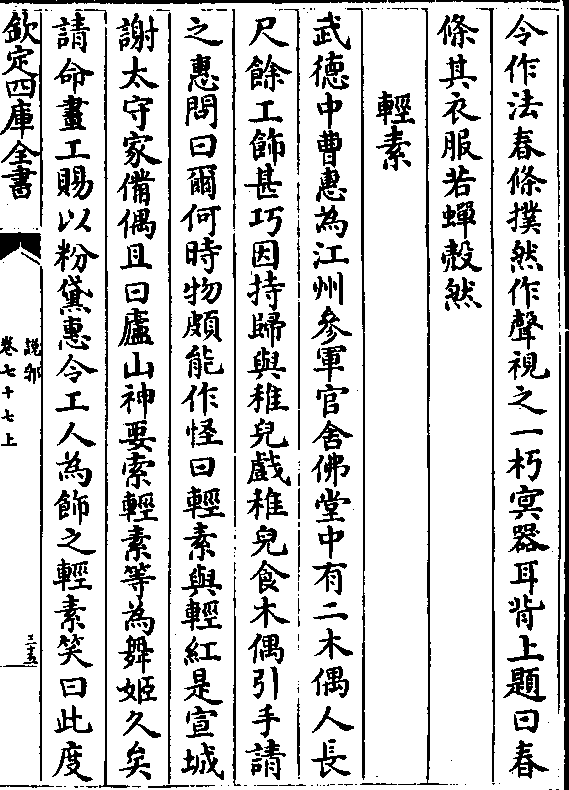 令作法春條撲然作聲視之一朽㝠器耳背上題曰春
條其衣服若蟬殼然
輕素
武德中曹惠為江州參軍官舍佛堂中有二木偶人長
尺餘工飾甚巧因持歸與稚兒戲稚兒食木偶引手請
之惠問曰爾何時物頗能作怪曰輕素與輕紅是宣城
謝太守家俑偶且曰廬山神要索輕素等為舞姬久矣
請命畫工賜以粉黛惠令工人為飾之輕素笑曰此度
欽定四庫全書
說郛
卷七十七上
三十五